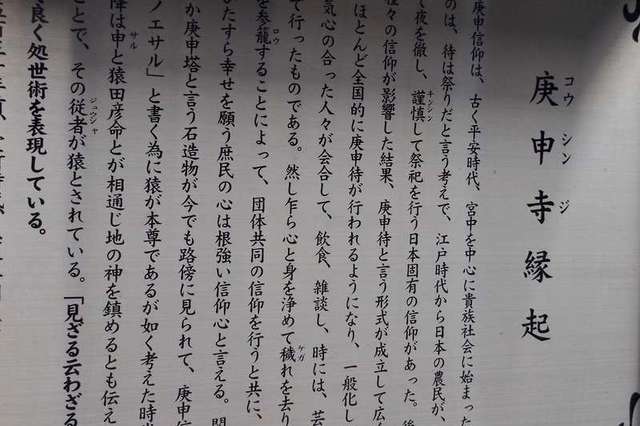 庚申寺縁起
コウシンジ
庚申信仰は、古く平安時代、宮中を中心に貴族社会に始まった
のは、待は祭りだと言う考えで、江戸時代から日本の農民が、
て夜を徹し、謹慎して祭祀を行う日本固有の信仰があった。後
キンシン
々の信仰が影響した結果、庚申待と言う形式が成立して広
ほとんど全国的に庚申待が行われるようになり、一般化し
気心の合った人々が会合して、飲食、雑談し、時には、芸
て行ったものである。然し乍ら心と身を浄めて穢れを去り
ケガ
を参籠することによって、団体共同の信仰を行うと共に、
ロウ
たすら幸せを願う庶民の心は根強い信仰心と言える。
か庚申塔と言う石造物が今でも路傍に見られて、庚申
ノエサル」と書く為に猿が本尊であるが如く考えた時
は申と猿田彦命とが相通じ地の神を鎮めるとも伝え
サル
とで、その従者が猿とされている。「見ざる云わざる
ジュウシャ
良く処世術を表現している。